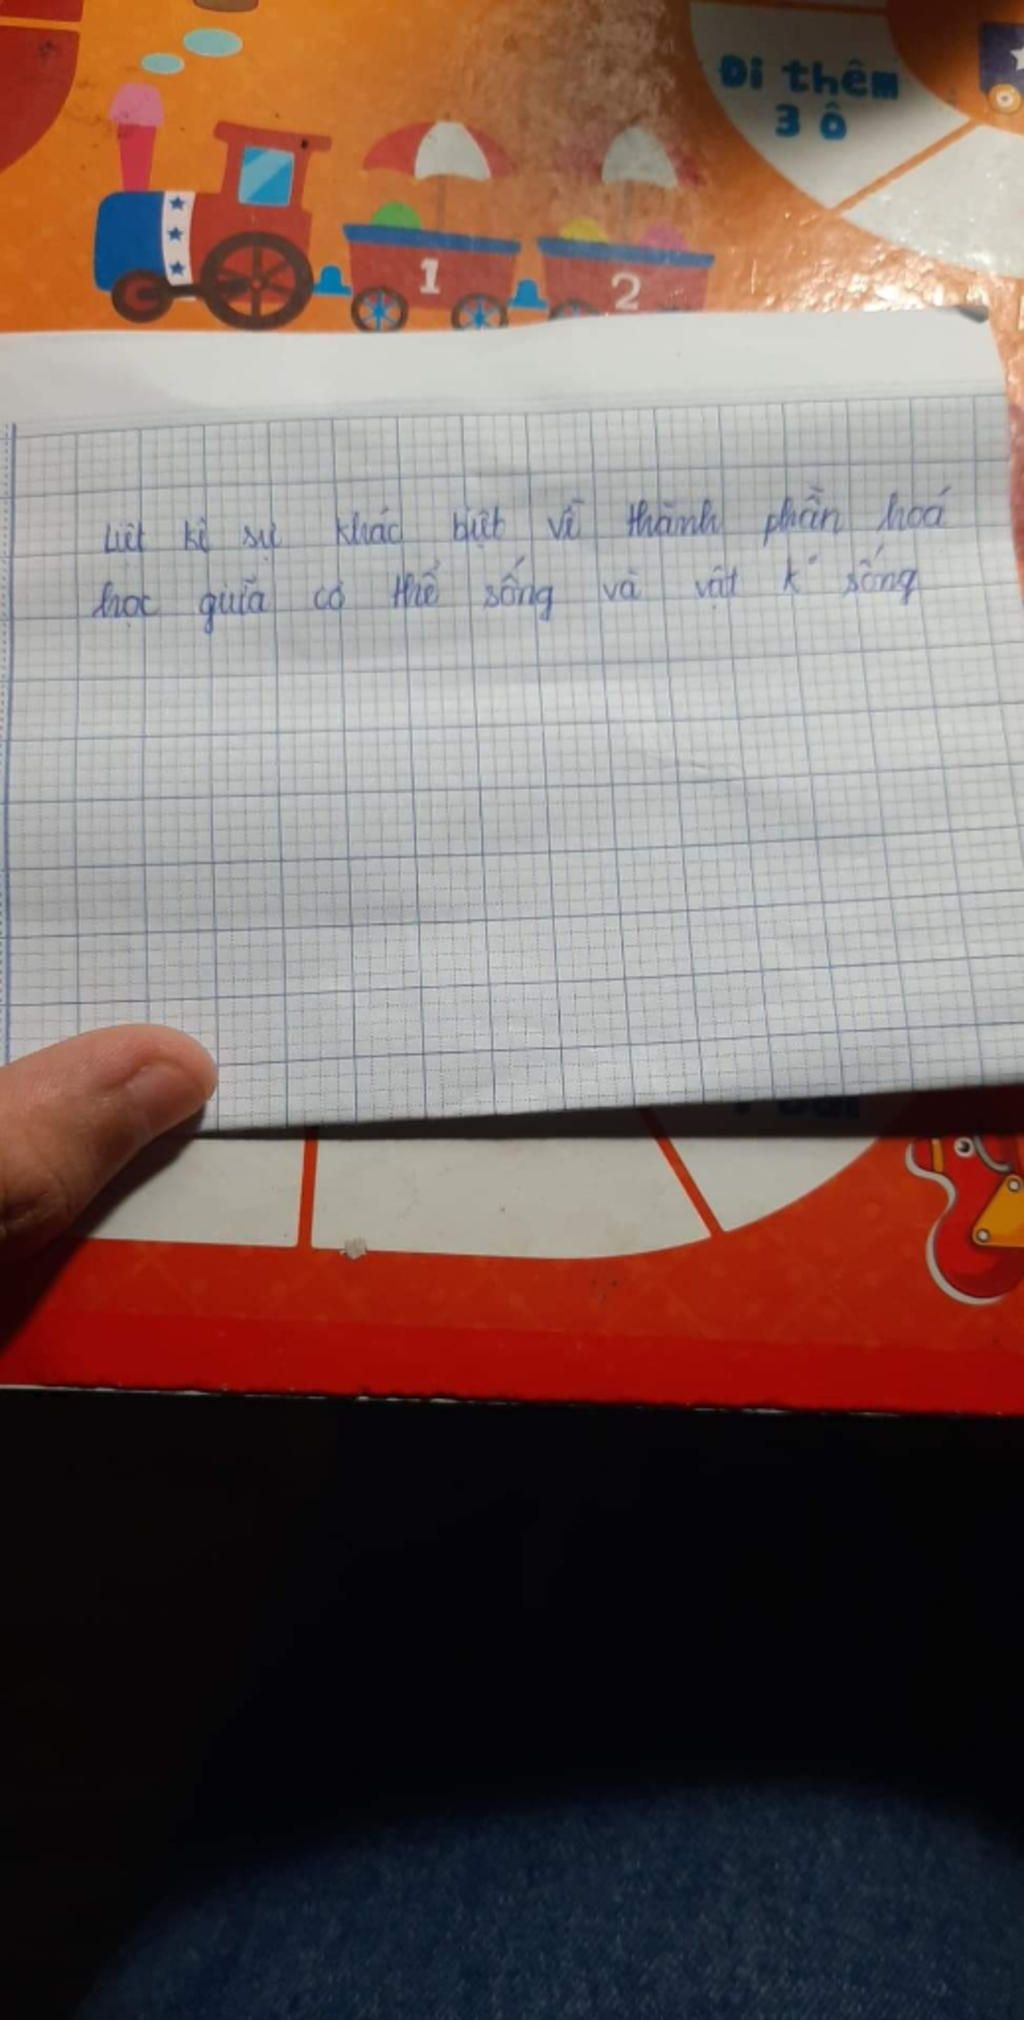 Đi thêm
3 ô
1
2
Liệt kê sự khác biệt về thành phần hoá
học giữa cơ thể sống và vật k° sống